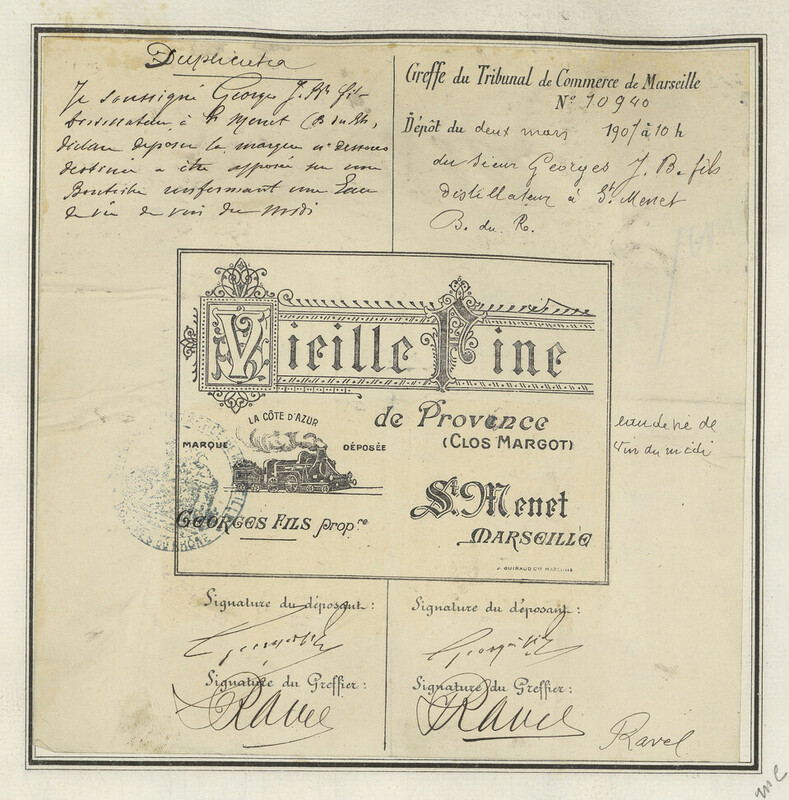 Duplicata
Je soussigné Georges J. B. fils
distillateur à St Menet (B du Rh,
déclare déposer la marque ci dessous
destinée a être apposée sur une
Bouteille renfermant une Eau
de vie de vin du midi
Greffe du Tribunal de Commerce de Marseille
N° 10940
Dépôt du deux mars 1907 à 10 h
du sieur Georges J. B. fils
distillateur à St. Menet
B. du R.
Vieille Fine
de Provence
(CLOS MARGOT)
LA CÔTE D'AZUR
MARQUE DÉPOSÉE
GEORGES FILS Prop.re
St. Menet
MARSEILLE
J. GUIRAUD Cie MARSEILLE
eau de vie de
Vin du midi
Signature du déposant :
Signature du déposant :
Georges fils
Georges fils
Signature du Greffier :
Signature du Greffier :
Ravel
Ravel
Ravel